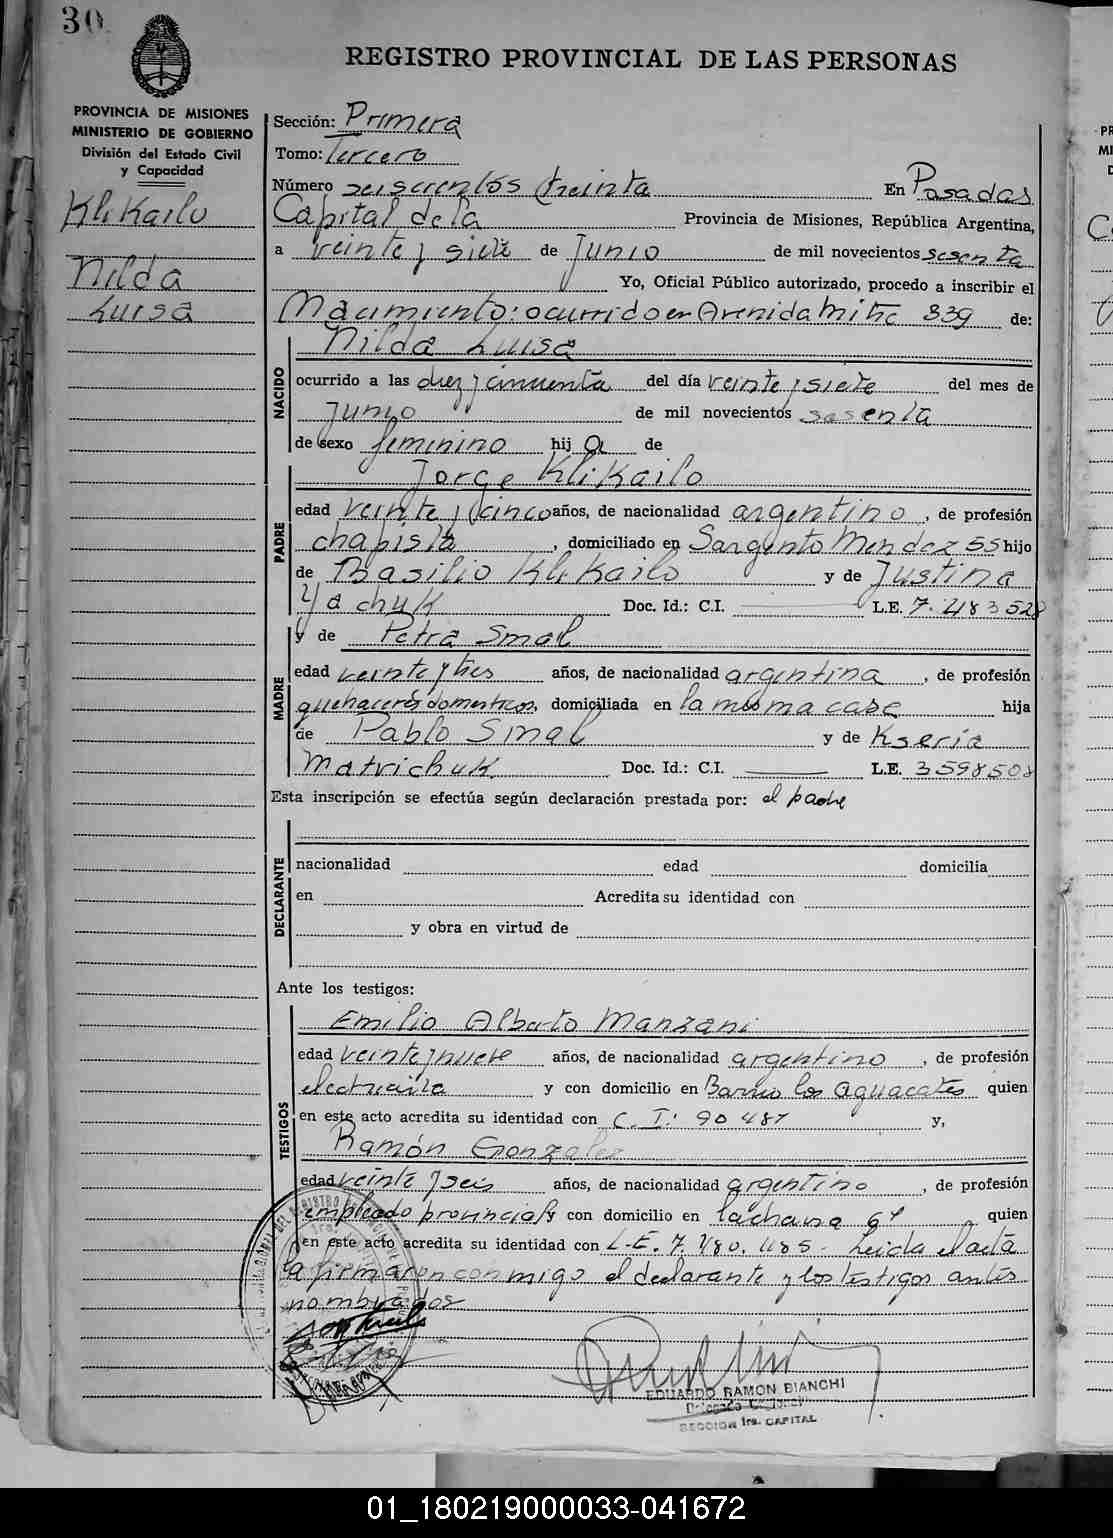 30
REGISTRO PROVINCIAL DE LAS PERSONAS
PROVINCIA DE MISIONES
MINISTERIO DE GOBIERNO
División del Estado Civil
y Capacidad
Klikailo
Nilda
Luisa
Sección: Primera
Tomo: Tercero
Número seiscientos treinta En Posadas
Capital de la Provincia de Misiones, República Argentina,
a veinte y siete de Junio de mil novecientos sesenta
Yo, Oficial Público autorizado, procedo a inscribir el
Nacimiento: ocurrido en Avenida Mitre 339 de:
Nilda Luisa
NACIDO
ocurrido a las diez y cincuenta del día veinte y siete del mes de
Junio de mil novecientos sesenta
de sexo femenino hij a de
Jorge Klikailo
PADRE
edad veinte y cinco años, de nacionalidad argentino, de profesión
chapista, domiciliado en Sargento Mendez 55 hijo
de Basilio Klikailo y de Justina
Yachuk Doc. Id.: C.I. L.E. 7.483528
y de Petra Smal
MADRE
edad veinte y tres años, de nacionalidad argentina, de profesión
quehaceres domesticos, domiciliada en la misma casa hija
de Pablo Smal y de Kseria
Matvichuk Doc. Id.: C.I. L.E. 3598508
Esta inscripción se efectúa según declaración prestada por: el padre
DECLARANTE
nacionalidad edad domicilia
en Acredita su identidad con
y obra en virtud de
Ante los testigos:
TESTIGOS
Emilio Alberto Manzani
edad veinte y nueve años, de nacionalidad argentino, de profesión
y con domicilio en Barrio los aguacates quien
en este acto acredita su identidad con C.I: 90487 y,
Ramón Gonzalez
edad veinte y seis años, de nacionalidad argentino, de profesión
empleado provincial y con domicilio en quien
en este acto acredita su identidad con L.E. 7. Leida el acta
la firmaron conmigo el declarante y los testigos antes
nombrados
EDUARDO RAMON BIANCHI
SECCION 1ra. CAPITAL
01_180219000033-041672